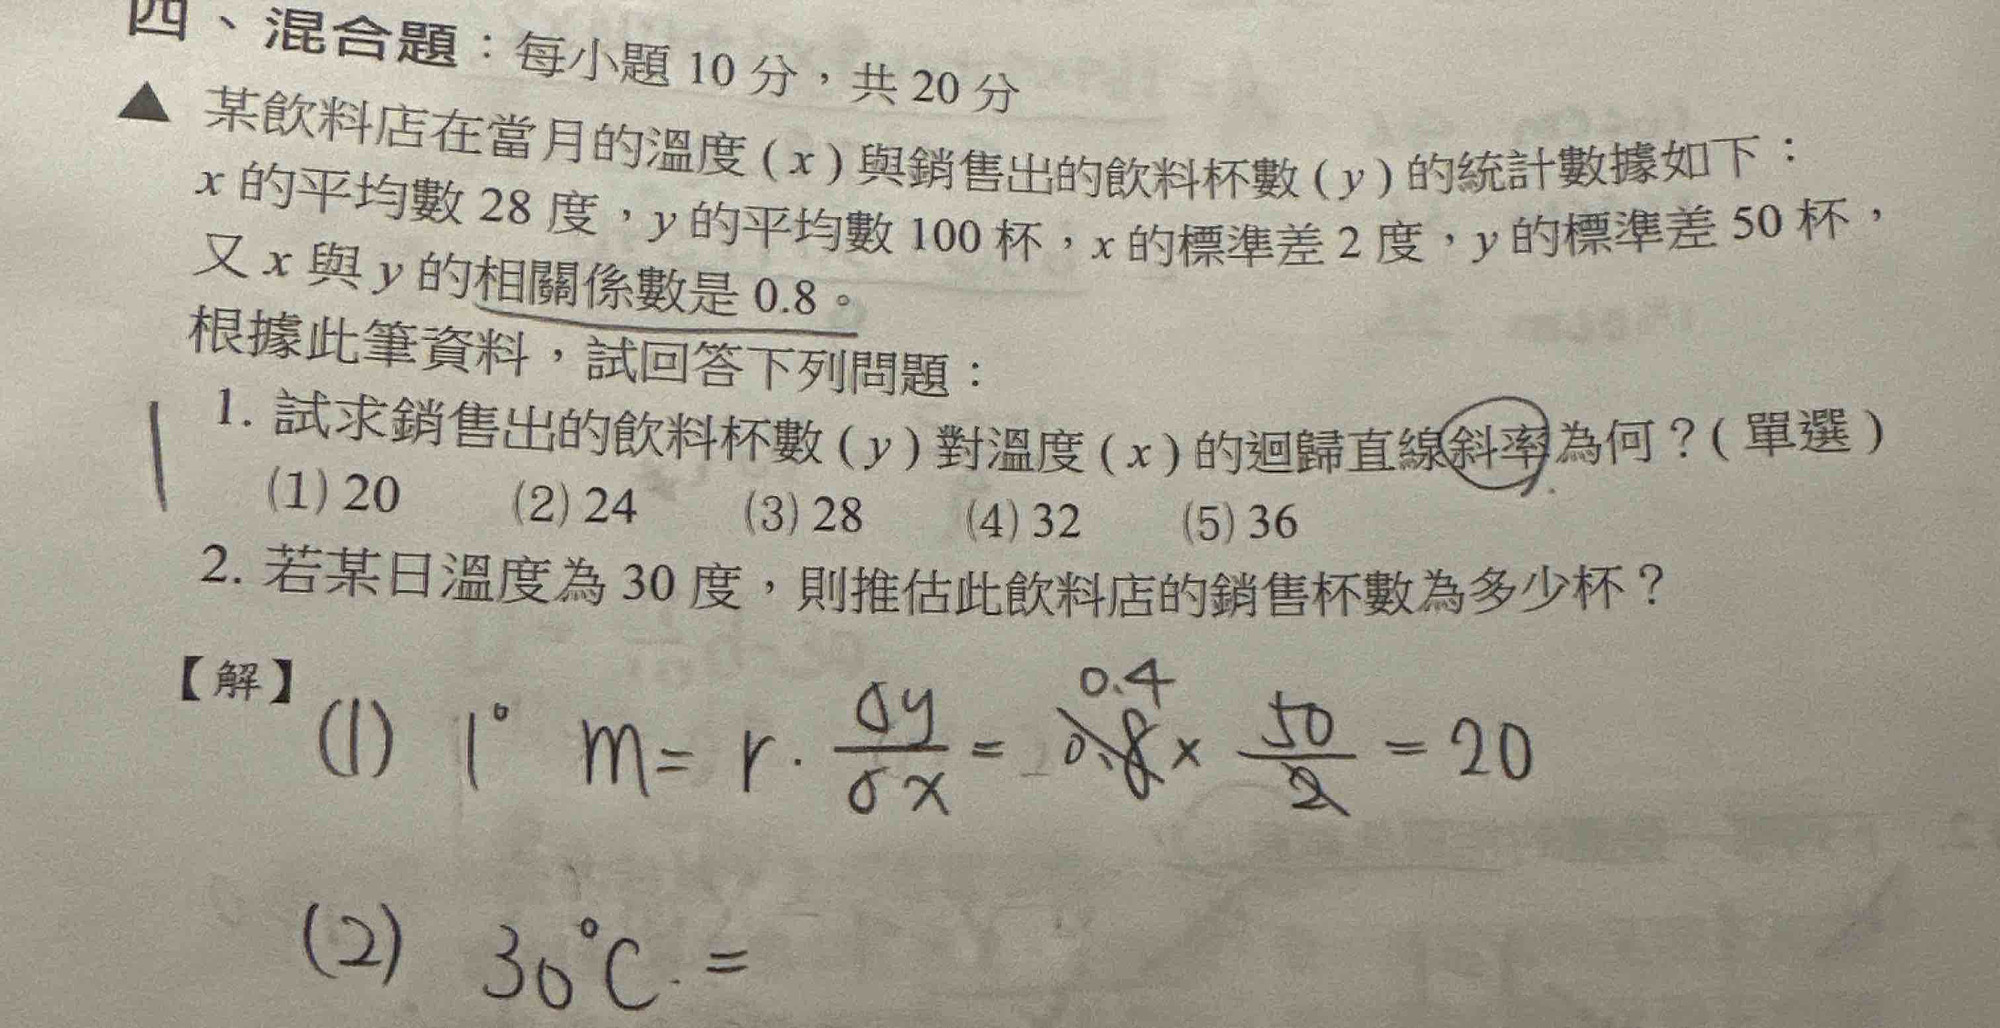 四、混合題：每小題 10 分，共 20 分
▲ 某飲料店在當月的溫度 ( x ) 與銷售出的飲料杯數 ( y ) 的統計數據如下：
x 的平均數 28 度，y 的平均數 100 杯，x 的標準差 2 度，y 的標準差 50 杯，
又 x 與 y 的相關係數是 0.8。
根據此筆資料，試回答下列問題：
1. 試求銷售出的飲料杯數 ( y ) 對溫度 ( x ) 的迴歸直線斜率為何？( 單選 )
(1) 20 (2) 24 (3) 28 (4) 32 (5) 36
2. 若某日溫度為 30 度，則推估此飲料店的銷售杯數為多少杯？
【解】
(1) 1° m = r · σy/σx = 0.8 0.4 × 50/2 = 20
(2) 30°C =